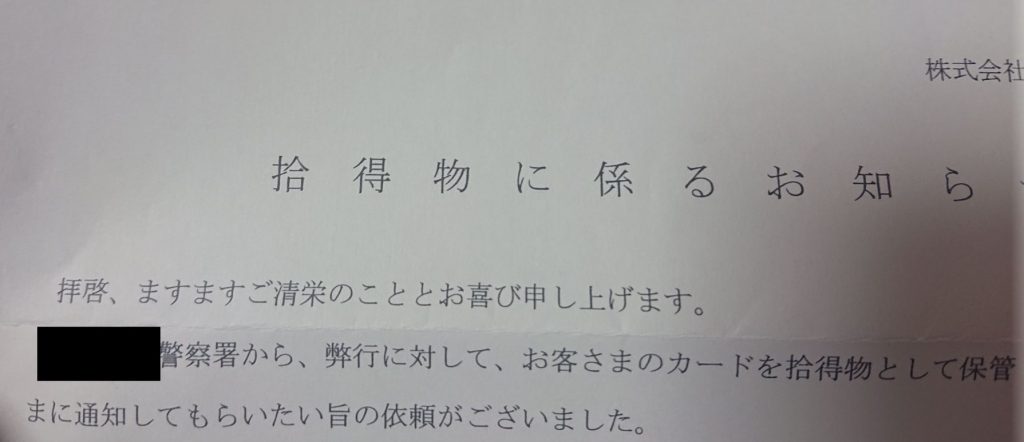 株式会社
拾得物に係るお知ら
拝啓、ますますご清栄のこととお喜び申し上げます。
警察署から、弊行に対して、お客さまのカードを拾得物として保管
まに通知してもらいたい旨の依頼がございました。